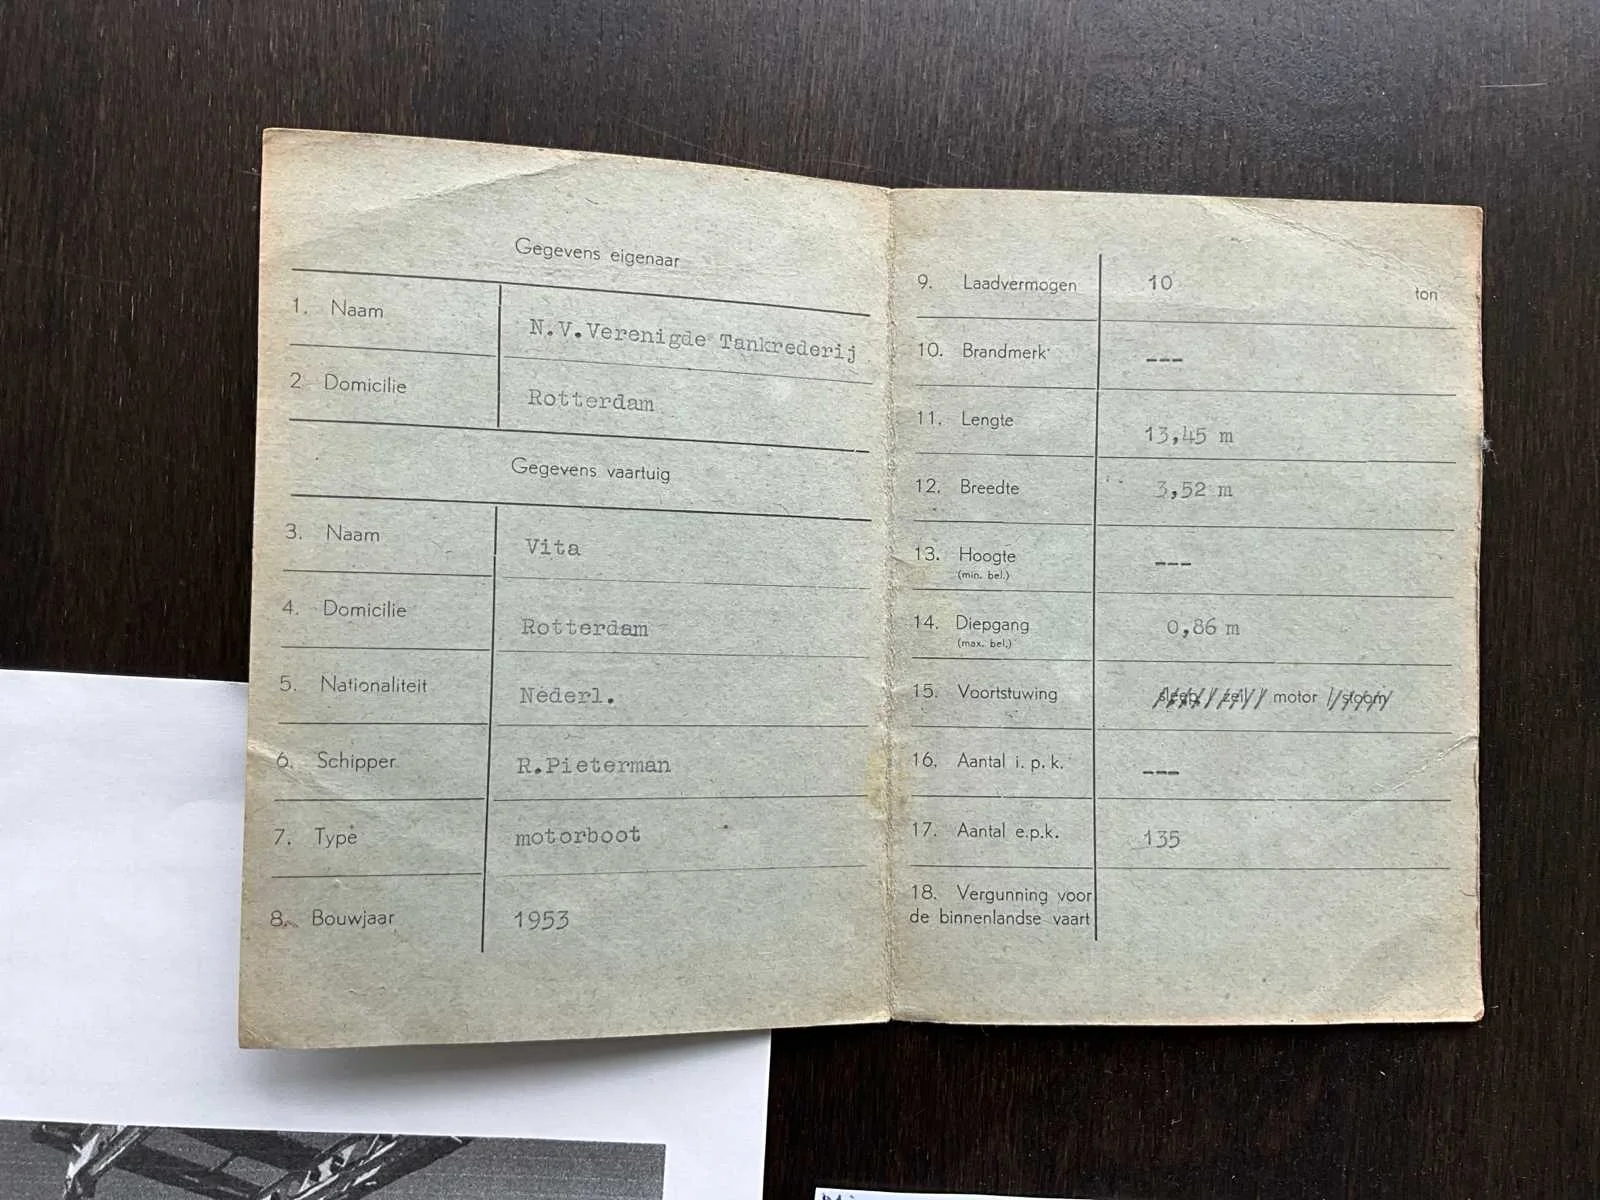 Gegevens eigenaar
1. Naam N.V.Verenigde Tankrederij
2 Domicilie Rotterdam
Gegevens vaartuig
3. Naam Vita
4. Domicilie Rotterdam
5. Nationaliteit Nederl.
6. Schipper R.Pieterman
7. Type motorboot
8. Bouwjaar 1953
9. Laadvermogen 10 ton
10. Brandmerk ---
11. Lengte 13,45 m
12. Breedte 3,52 m
13. Hoogte ---
(min. bel.)
14. Diepgang 0,86 m
(max. bel.)
15. Voortstuwing sleep / zeil / motor / stoom
16. Aantal i. p. k. ---
17. Aantal e.p.k. 135
18. Vergunning voor
de binnenlandse vaart